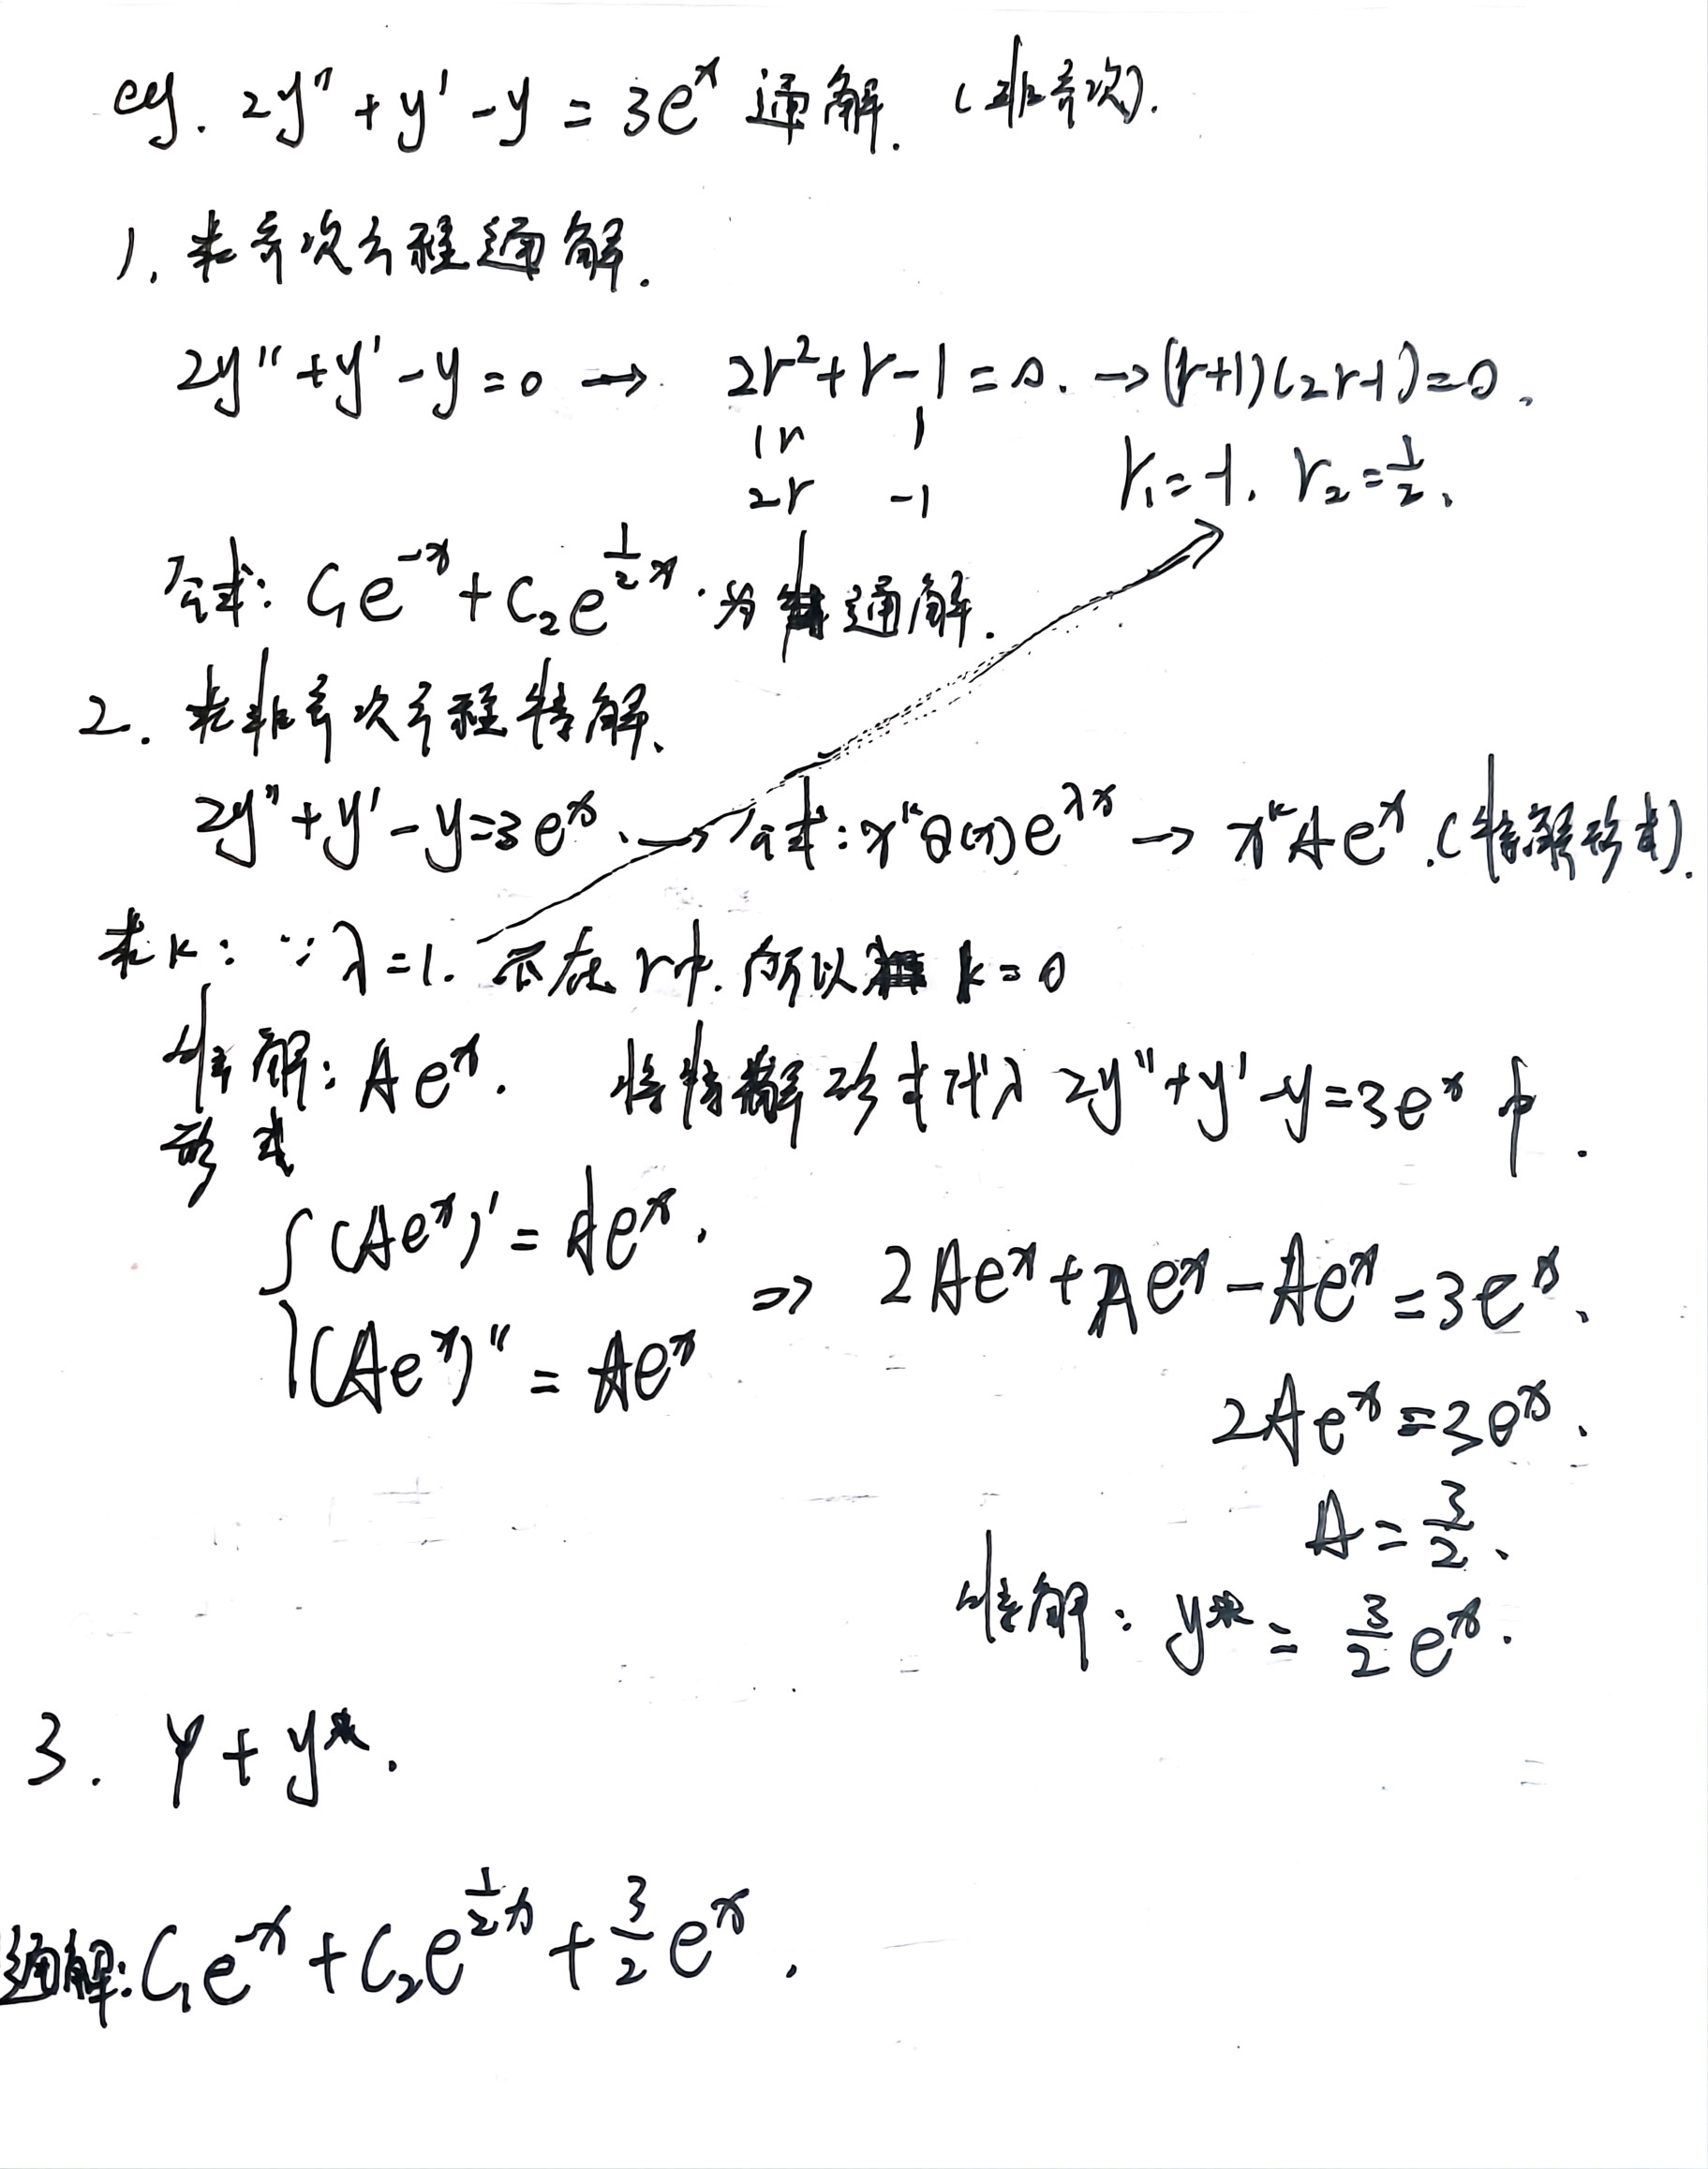 eg. 2y" + y' - y = 3e^x 通解. (非齐次).
1. 求齐次方程通解.
2y" + y' - y = 0 → 2r² + r - 1 = 0. → (r+1)(2r-1) = 0.
1r 1
2r -1
r₁ = -1. r₂ = 1/2.
公式: C₁e^{-x} + C₂e^{1/2 x}. 为 通解.
2. 求非齐次方程特解.
2y" + y' - y = 3e^x. → 公式: x^k Q(x)e^{λx} → x^k Ae^x. (特解形式).
求k: ∵ λ = 1. 不在r中. 所以 k = 0
特解: Ae^x. 将特解形式代入 2y" + y' - y = 3e^x 中.
形式
{ (Ae^x)' = Ae^x.
(Ae^x)" = Ae^x
⇒ 2Ae^x + Ae^x - Ae^x = 3e^x.
2Ae^x = 3e^x.
A = 3/2.
特解: y* = 3/2 e^x.
3. Y + y*.
通解: C₁e^{-x} + C₂e^{1/2 x} + 3/2 e^x.